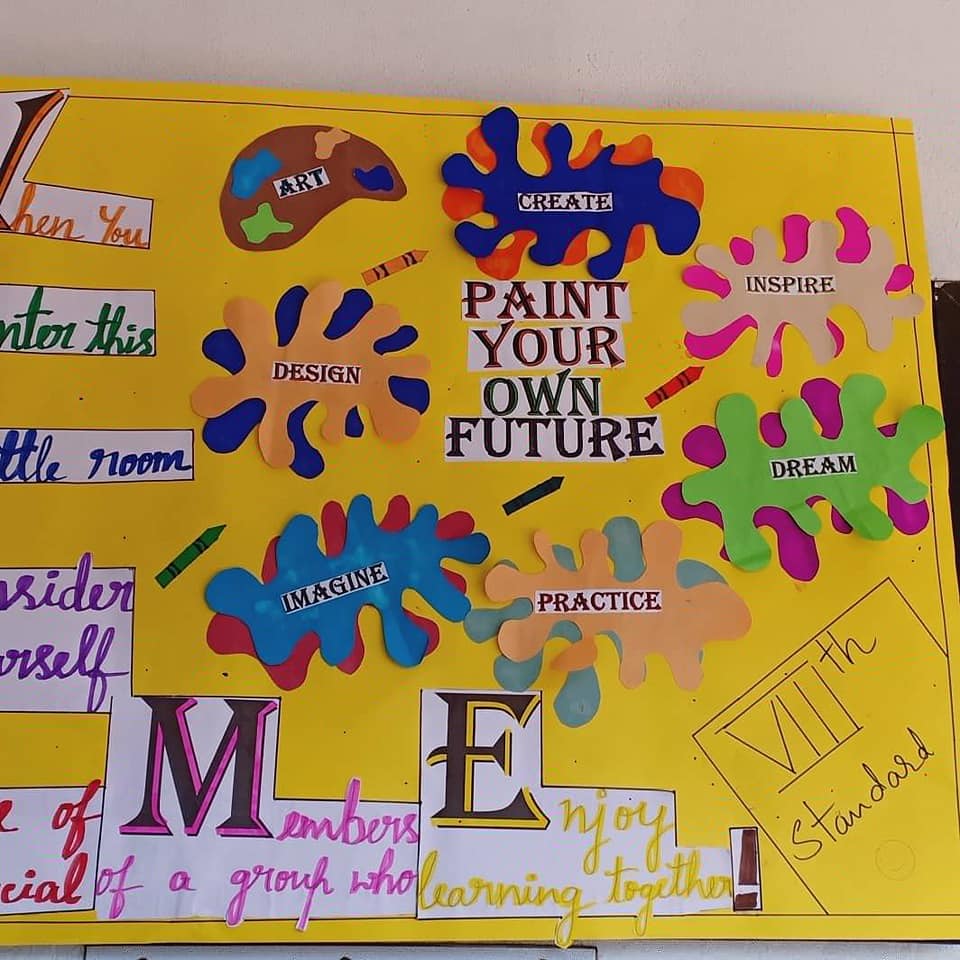 hen You
nter this
ttle room
nsider
urself
e of
cial
ART
CREATE
INSPIRE
DESIGN
PAINT
YOUR
OWN
FUTURE
DREAM
IMAGINE
PRACTICE
VIIIth
Standard
Members
of a group who
Enjoy
learning together!